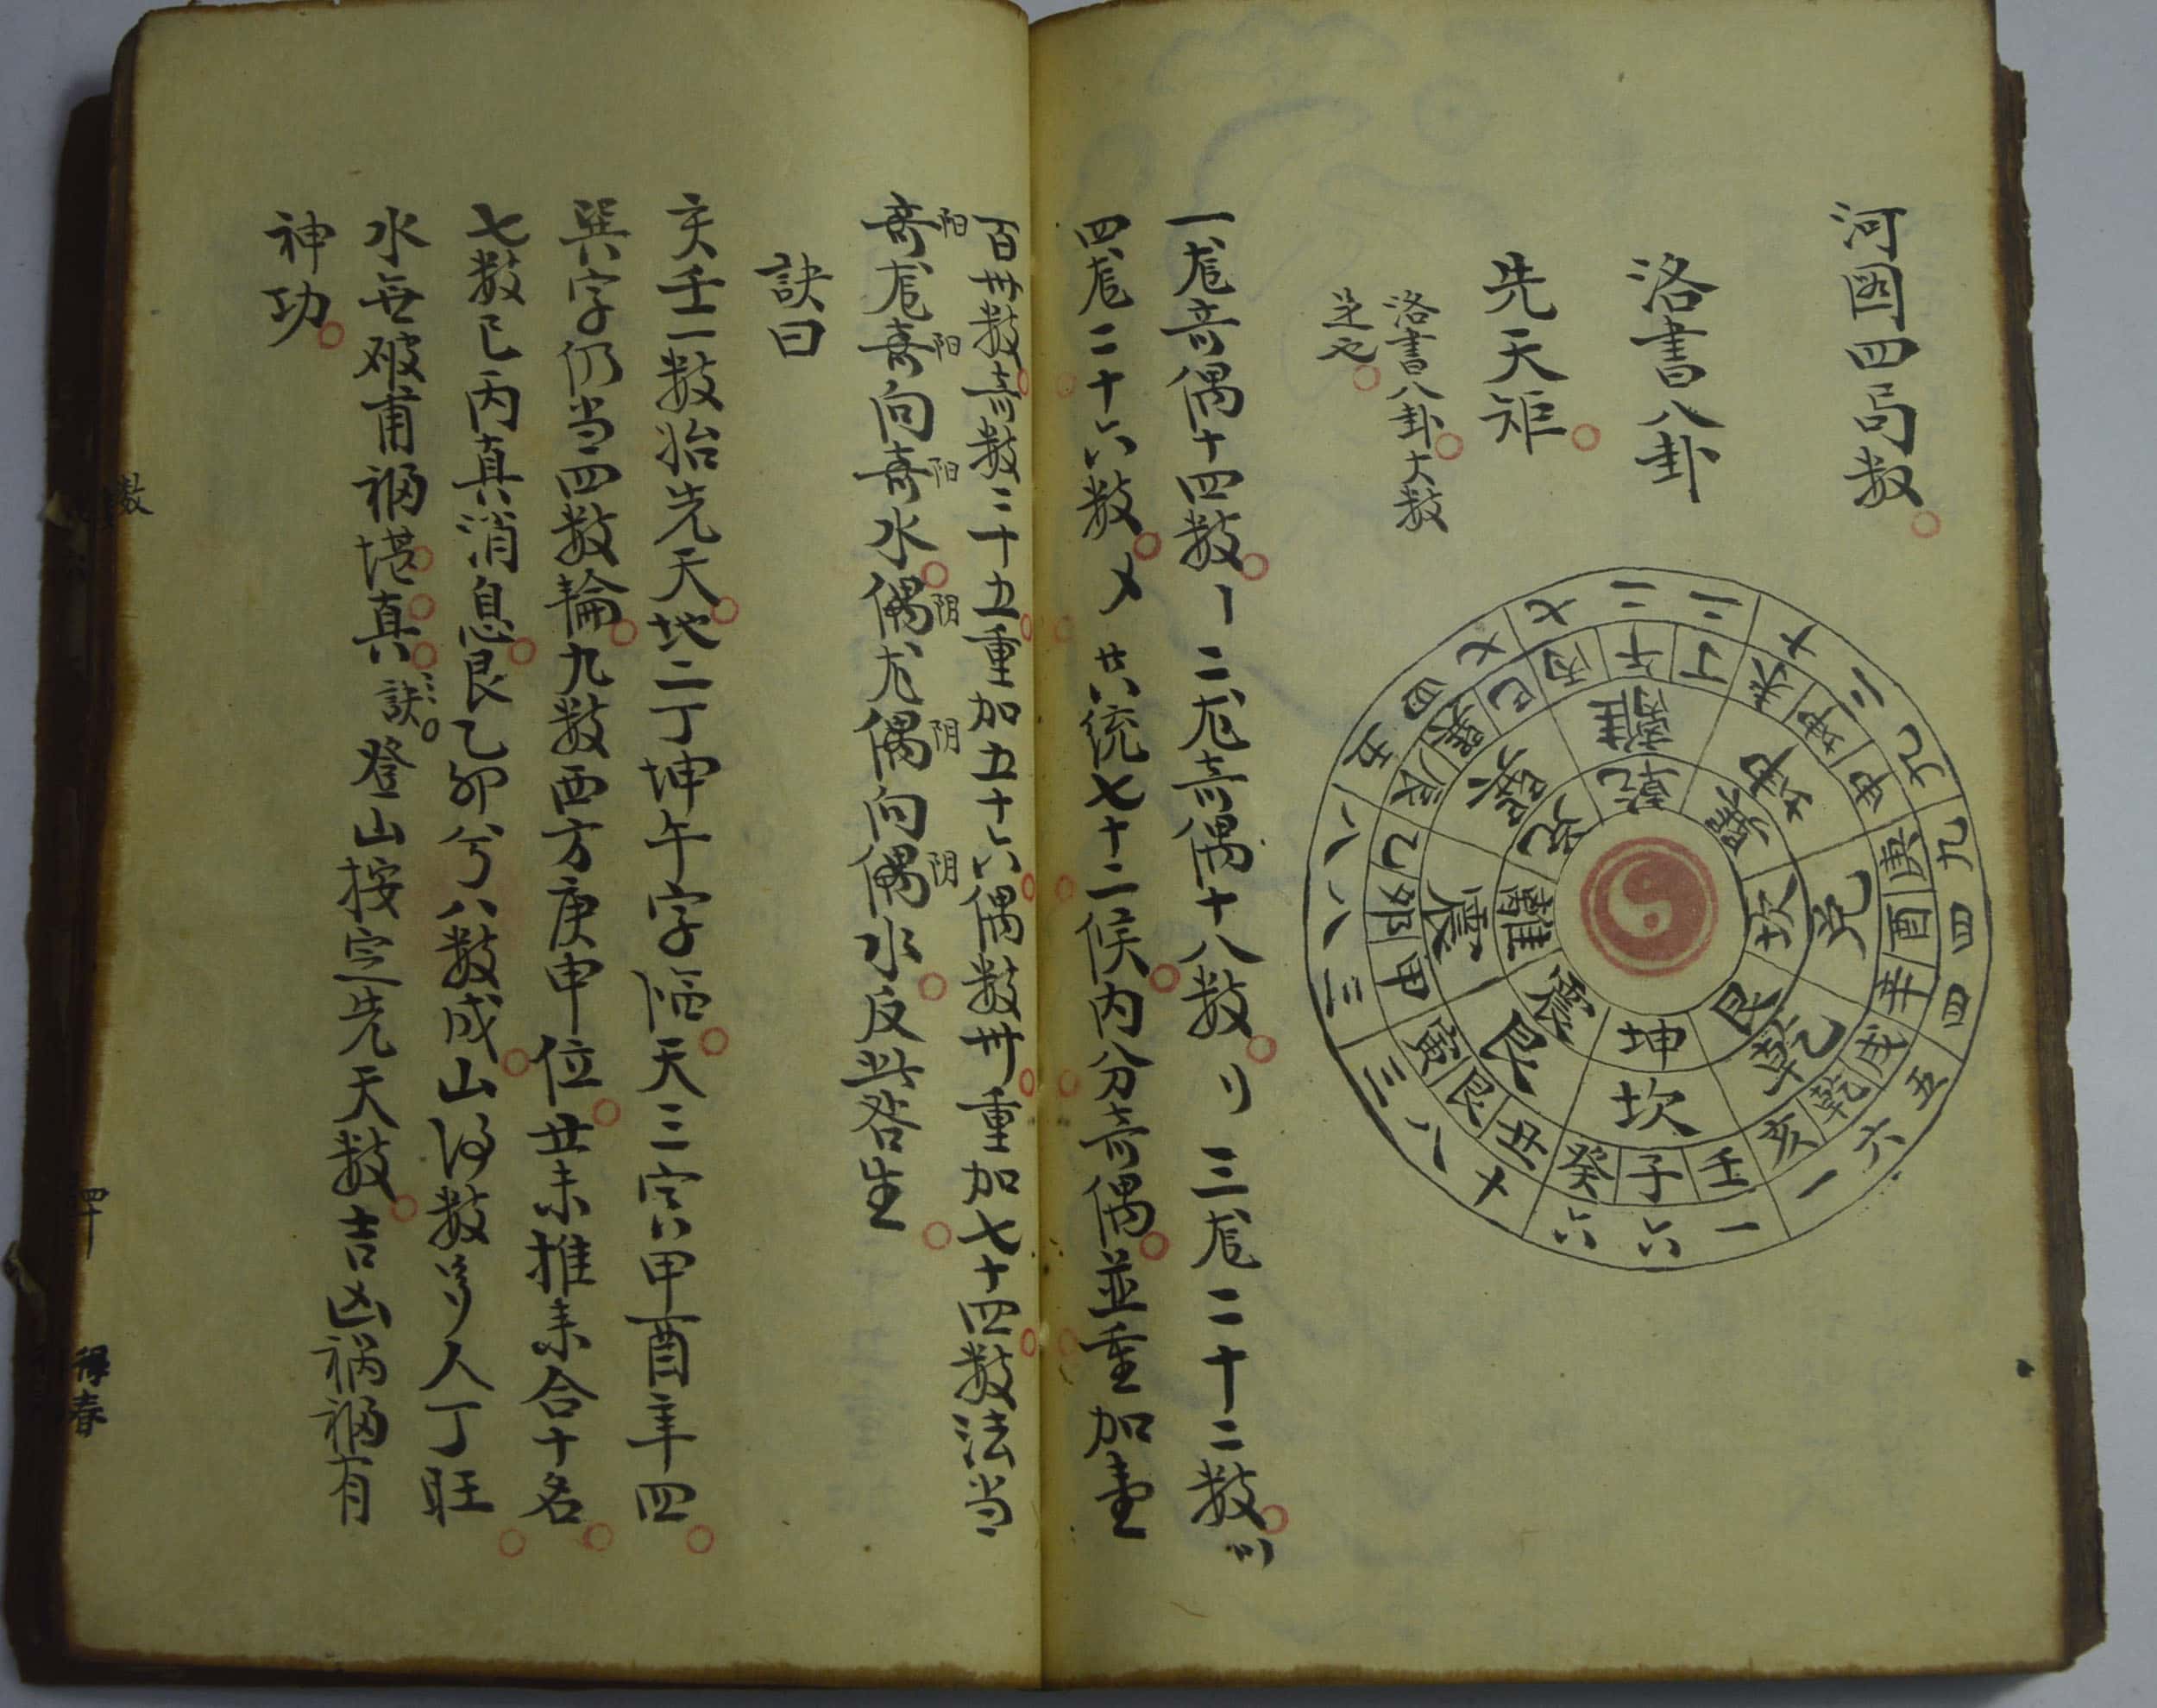 河图四局数
洛書八卦
先天矩
洛書八卦大数
足也
二 二 二 十 二 九 九 四 四 五 六 一 一 六 六 十 八 三 三 八 八 五 四 七 七
丙 午 丁 未 坤 申 庚 酉 辛 戌 乾 亥 壬 子 癸 丑 艮 寅 甲 卯 乙 辰 巽 巳
離 坤 兌 乾 坎 艮 震 巽
乾 巽 坎 艮 坤 震 離 兌
一龙奇偶十四数〡二龙奇偶十八数〢三龙二十二数〣
四龙二十六数〤共統七十二候内分奇偶並重加重
百卅数奇数二十五重加五十六偶数卅重加七十四数法当
奇龙奇向奇水偶龙偶向偶水反此咎生
阳 阳 阳 阴 阴 阴
訣曰
亥壬一数始先天地二丁坤午字随天三寅甲酉辛四
巽字仍当四数輪九数西方庚申位丑未推来合十名
七数巳丙真消息艮乙卯兮八数成山得数多人丁旺
水無破甫福堪真訣登山按定先天数吉凶祸福有
神功
数
四十
得春